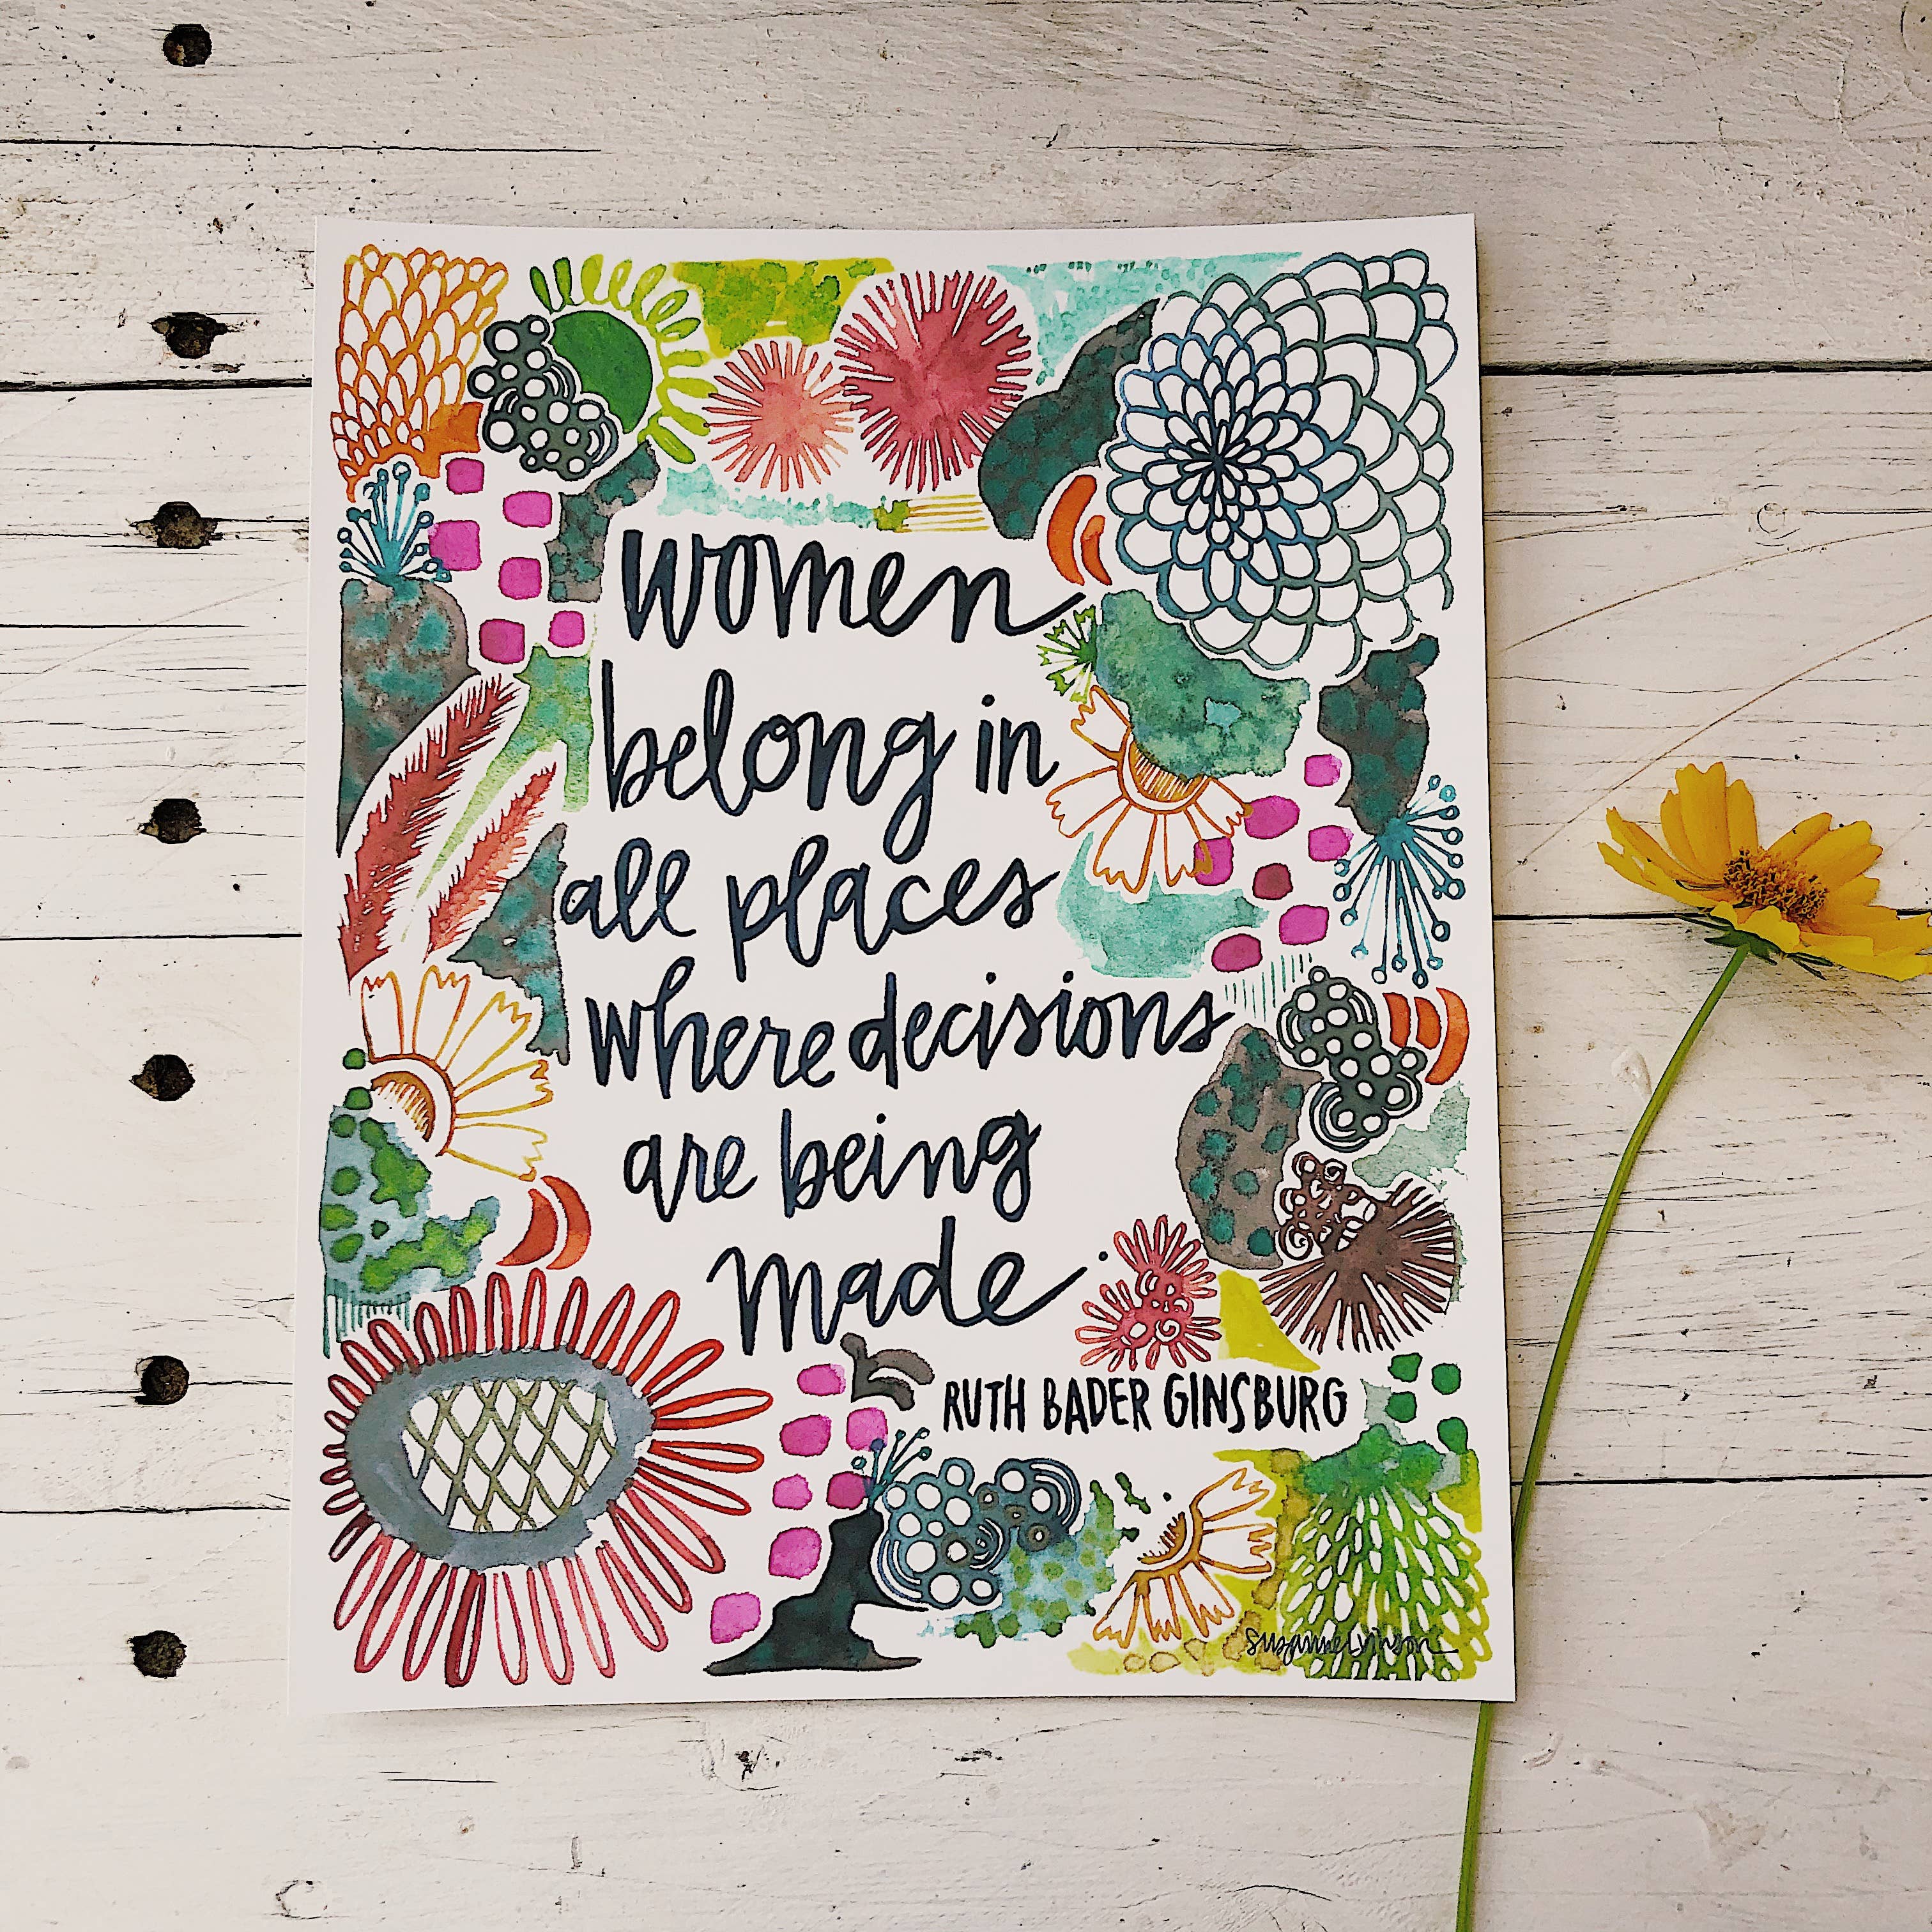 women
belong in
all places
where decisions
are being
made.
RUTH BADER GINSBURG
suzannelvinson